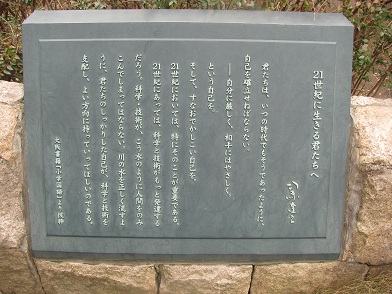 21世紀に生きる君たちへ
司馬遼太郎
君たちは、いつの時代でもそうであったように、
自己を確立せねばならない。
――自分に厳しく、相手にはやさしく。
という自己を。
そして、すなおでかしこい自己を。
21世紀においては、特にそのことが重要である。
21世紀にあっては、科学と技術がもっと発達する
だろう。科学・技術が、こう水のように人間をのみ
こんでしまってはならない。川の水を正しく流すよ
うに、君たちのしっかりした自己が、科学と技術を
支配し、よい方向に持っていってほしいのである。
大阪書籍「小学国語」より、抜粋